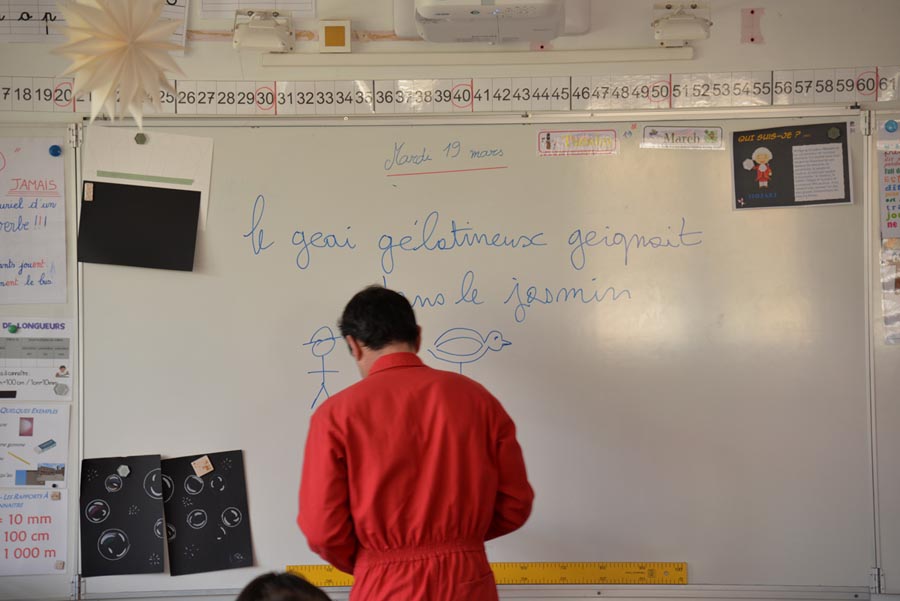 7 18 19 20 26 27 28 29 30 31 32 33 34 35 36 37 38 39 40 41 42 43 44 45 46 47 48 49 50 51 52 53 54 55 56 57 58 59 60 61
Mardi 19 mars
19
March
QUI SUIS-JE ?
le geai gélatineux geignait
dans le jasmin
JAMAIS
uriel d'un
erbe !!!
ants jouent
ment le bus
DE LONGUEURS
QUELQUES EXEMPLES
- LES RAPPORTS À
NNAITRE
= 10 mm
100 cm
1 000 m